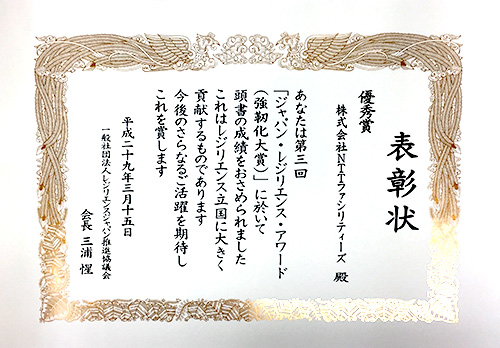 表彰状
優秀賞
株式会社NTTファシリティーズ 殿
あなたは第三回
「ジャパン・レジリエンス・アワード
(強靭化大賞)」に於いて
頭書の成績をおさめられました
これはレジリエンス立国に大きく
貢献するものであります
今後のさらなるご活躍を期待し
これを賞します
平成二十九年三月十五日
一般社団法人レジリエンスジャパン推進協議会
会長 三浦 惺